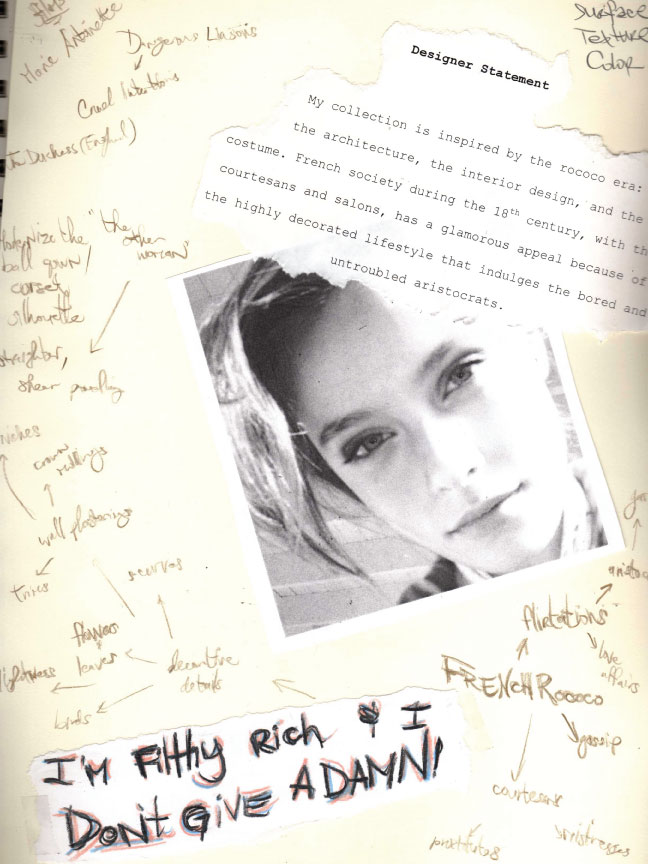 films
Marie Antoinette
Dangerous Liasons
Cruel Intentions
Duchess
Surface
Texture
Color
Designer Statement
My collection is inspired by the rococo era:
the architecture, the interior design, and the
costume. French society during the 18th century, with th
courtesans and salons, has a glamorous appeal because of
the highly decorated lifestyle that indulges the bored and
untroubled aristocrats.
the
"the other
ball gown,
woman"
corset
silhouette
straighter,
niches
crown
wall
scurves
flowers
leaves
decorative
details
birds
flirtations
love
affairs
FRENCH Rococo
gossip
courtesans
mistresses
I'M FilThy Rich & I
DON't GiVE A DAMN!